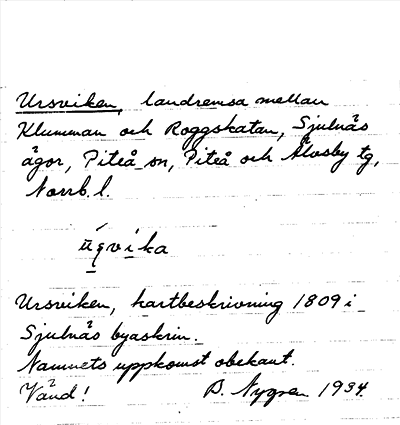 Ursviken, landremsa mellan
Klumman och Roggskatan, Sjulnäs
ägor, Piteå sn, Piteå och Älvsby tg,
Norrb. l.
Ursviken, kartbeskrivning 1809 i
Sjulnäs byaskrin.
Namnets uppkomst obekant.
Vänd! D. Nygren 1934.